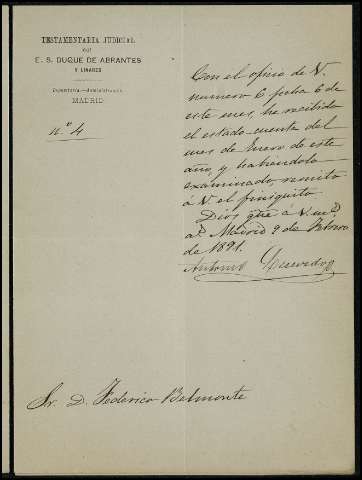 TESTAMENTARIA JUDICIAL
DEL
E. S. DUQUE DE ABRANTES
Y LINARES
Inventario.—Administración
MADRID
n.º 4
Con el oficio de V.
numero 6 fecha 6 de
este mes, he recibido
el estado-cuenta del
mes de Enero de este
año, y habiendola
examinado, remito
á V. el finiquito.
Dios gue á V. m.s
a.s Madrid 9 de Febrero
de 1891.
Antonio Quevedo
Sr. D. Federico Belmonte